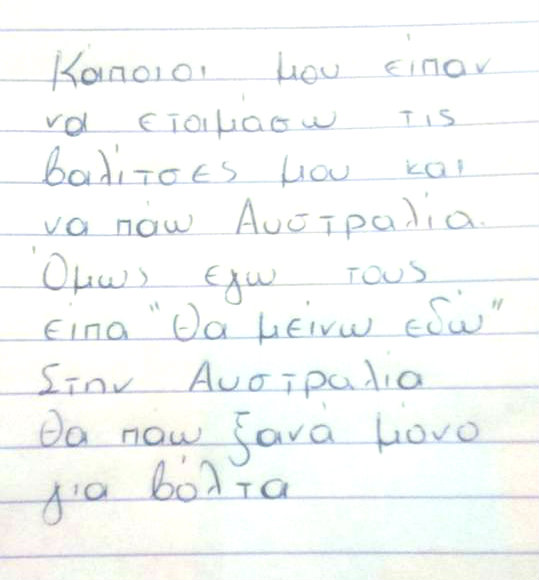 Κάποιοι μου είπαν
να ετοιμάσω τις
βαλίτσες μου και
να πάω Αυστραλία.
Όμως εγω τους
είπα "θα μείνω εδώ"
Στην Αυστραλία
θα παω ξανά μόνο
για βόλτα